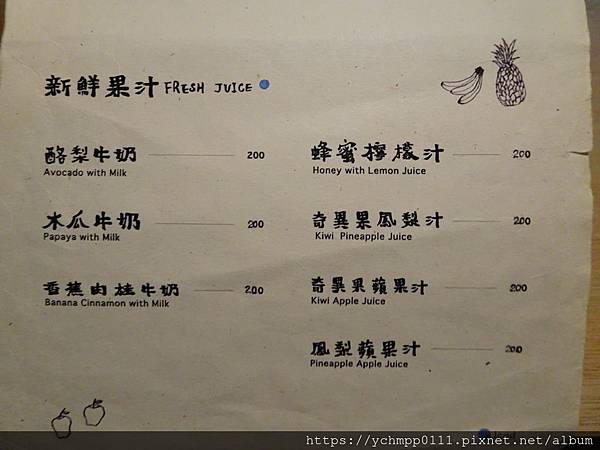 新鮮果汁 FRESH JUICE
酪梨牛奶 200
Avocado with Milk
木瓜牛奶 200
Papaya with Milk
香蕉肉桂牛奶 200
Banana Cinnamon with Milk
蜂蜜檸檬汁 200
Honey with Lemon Juice
奇異果鳳梨汁 200
Kiwi Pineapple Juice
奇異果蘋果汁 200
Kiwi Apple Juice
鳳梨蘋果汁 200
Pineapple Apple Juice
https://ychmpp0111.pixnet.net/album